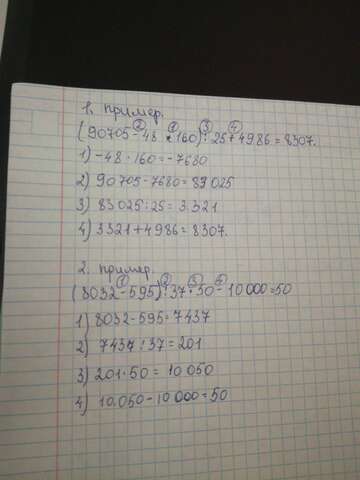 1. пример.
(90705-48·160):25+4986=8307.
1) -48·160=-7680
2) 90705-7680=83025
3) 83025:25=3321
4) 3321+4986=8307.
2. пример.
(8032-595):37·50-10000=50
1) 8032-595=7437
2) 7437:37=201
3) 201·50=10050
4) 10.050-10000=50